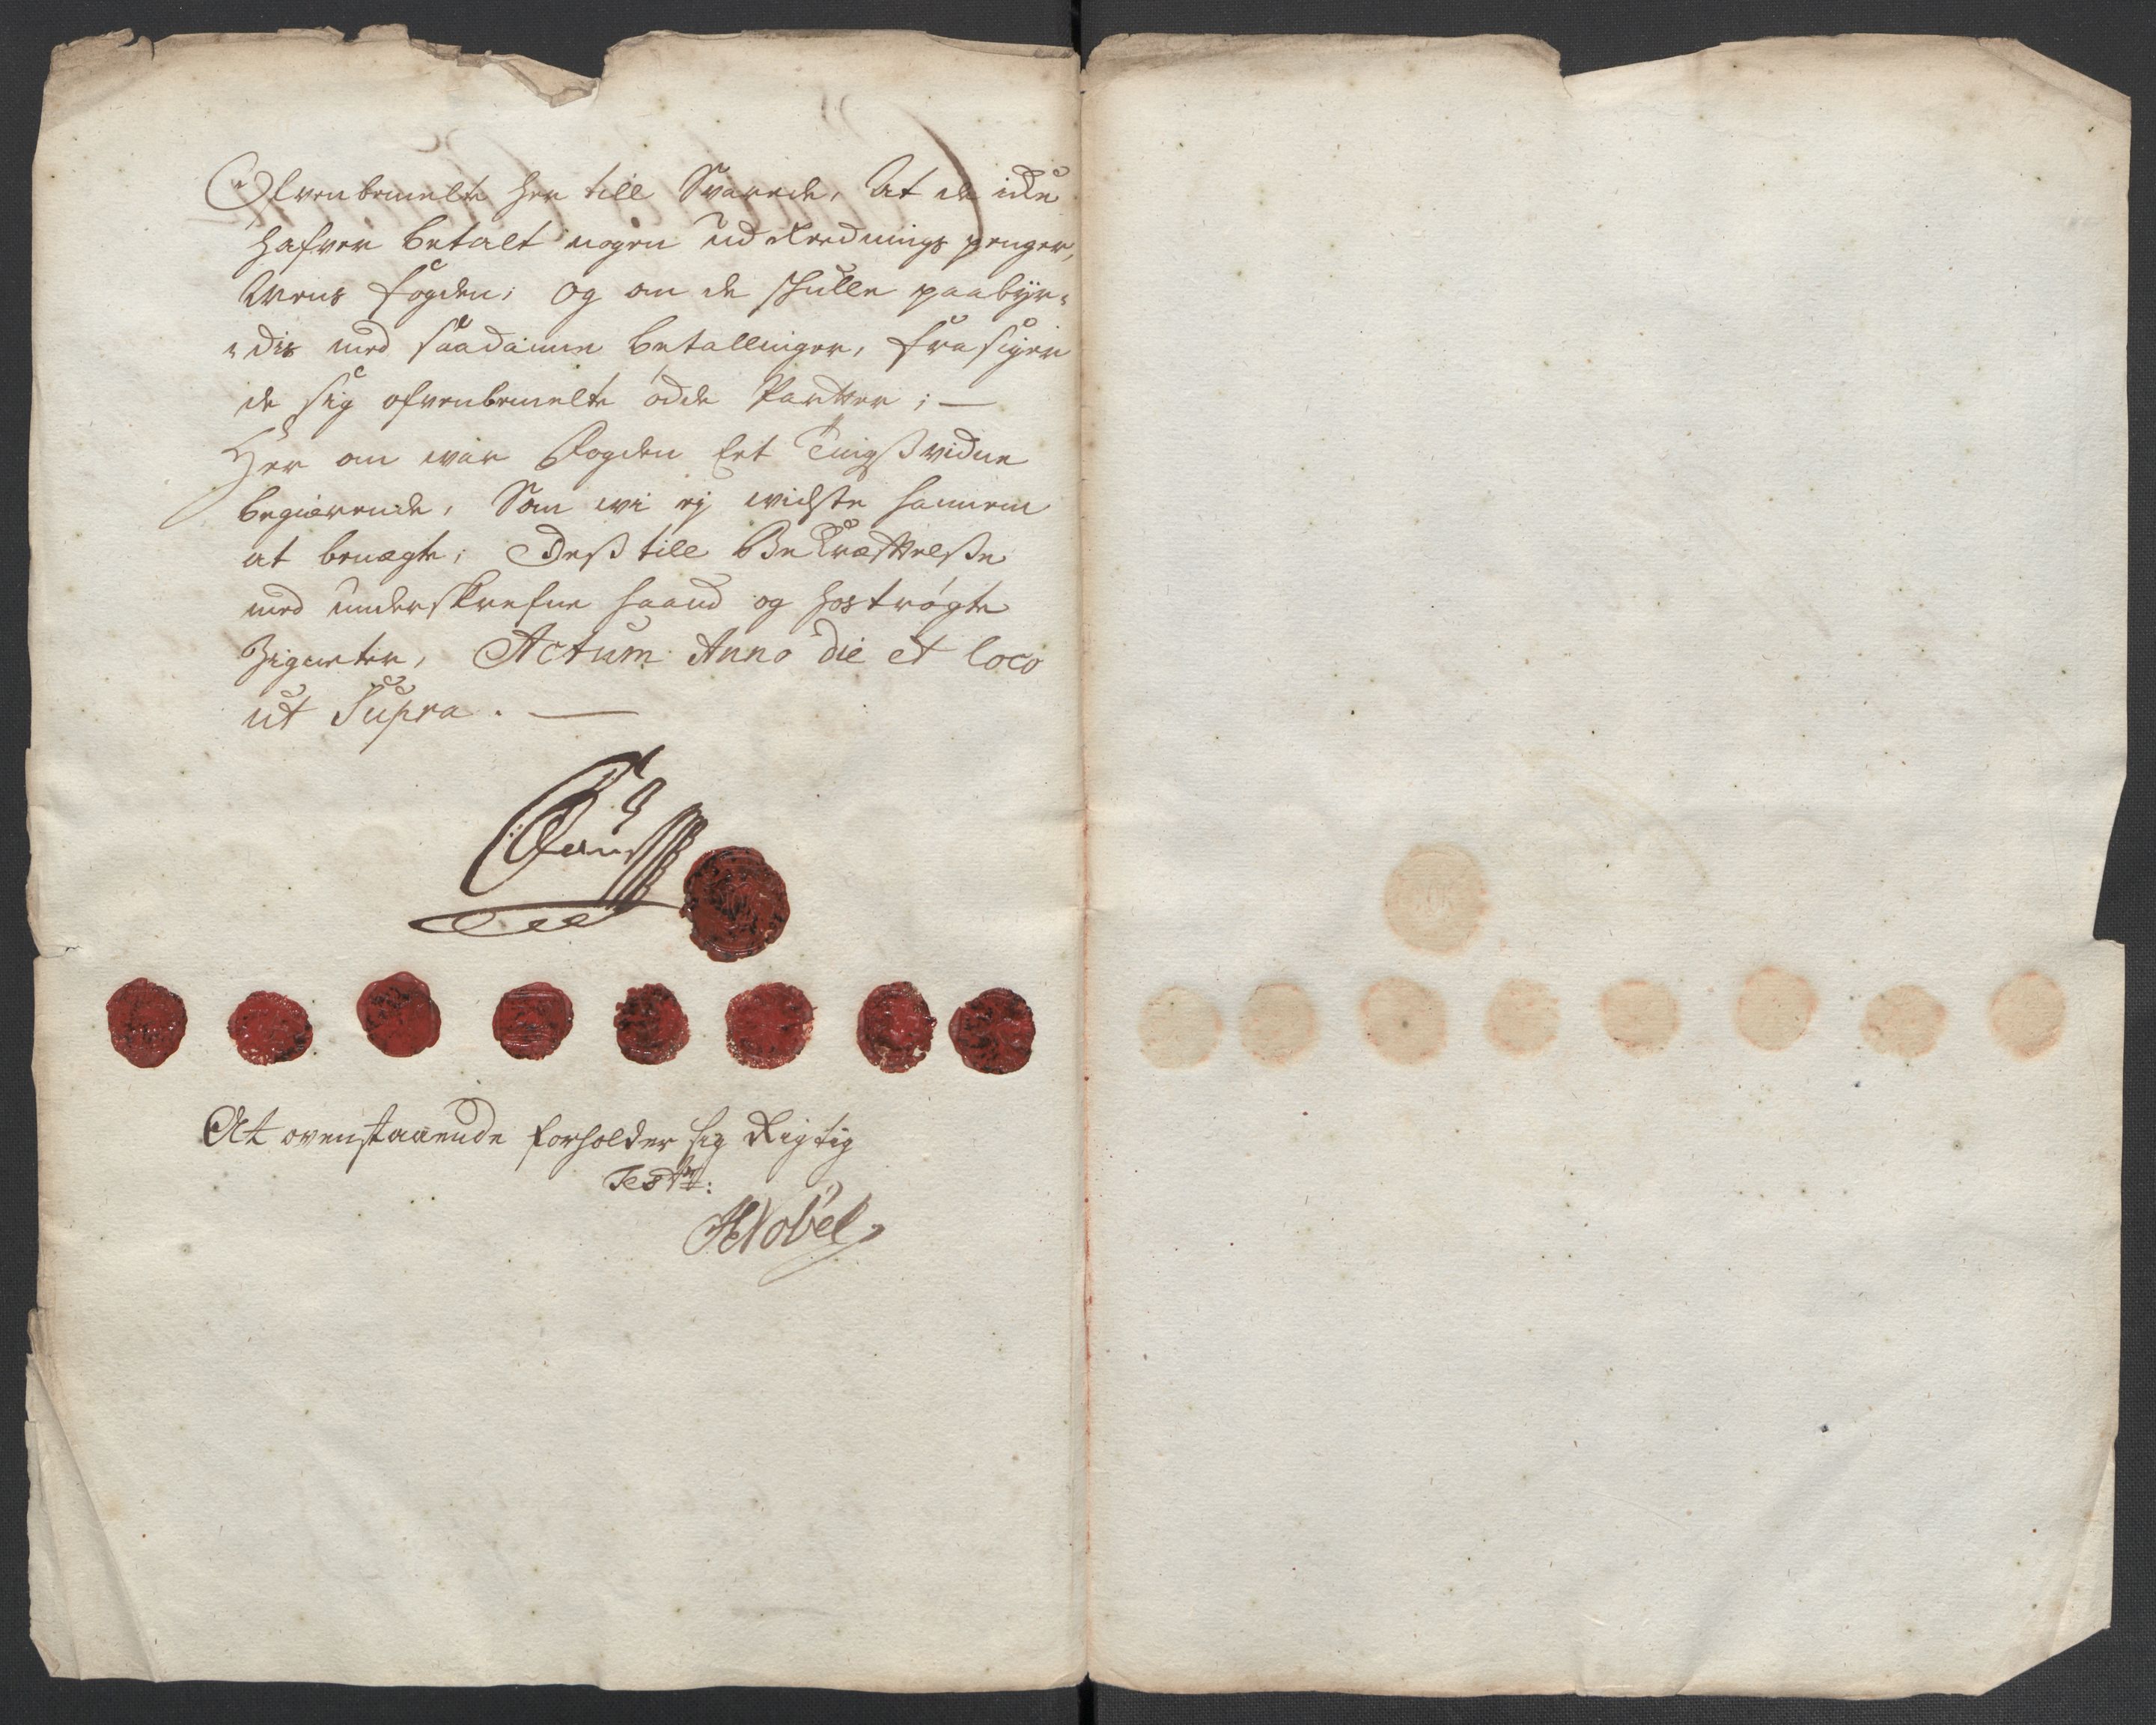 Ofvenbemelte her till Svarede, At de icke
hafver betalt nogen udreednings penger,
Mons fogden; og om de schulle paabyr-
-dis med saadanne betallinger, frasiger
de sig ofvenbemelte öde Parter; —
Her om war Fogden Eet Tingsvidne
begiærende, Som wi ej widste hannem
at benægte; Dess till Bekræfftelsse
med underskrefne haand og hoströgte
Zigneter, Actum Anno die et loco
ut Supra. —
At ovenstaaende forholder sig Rigtig
Test:
HNobel